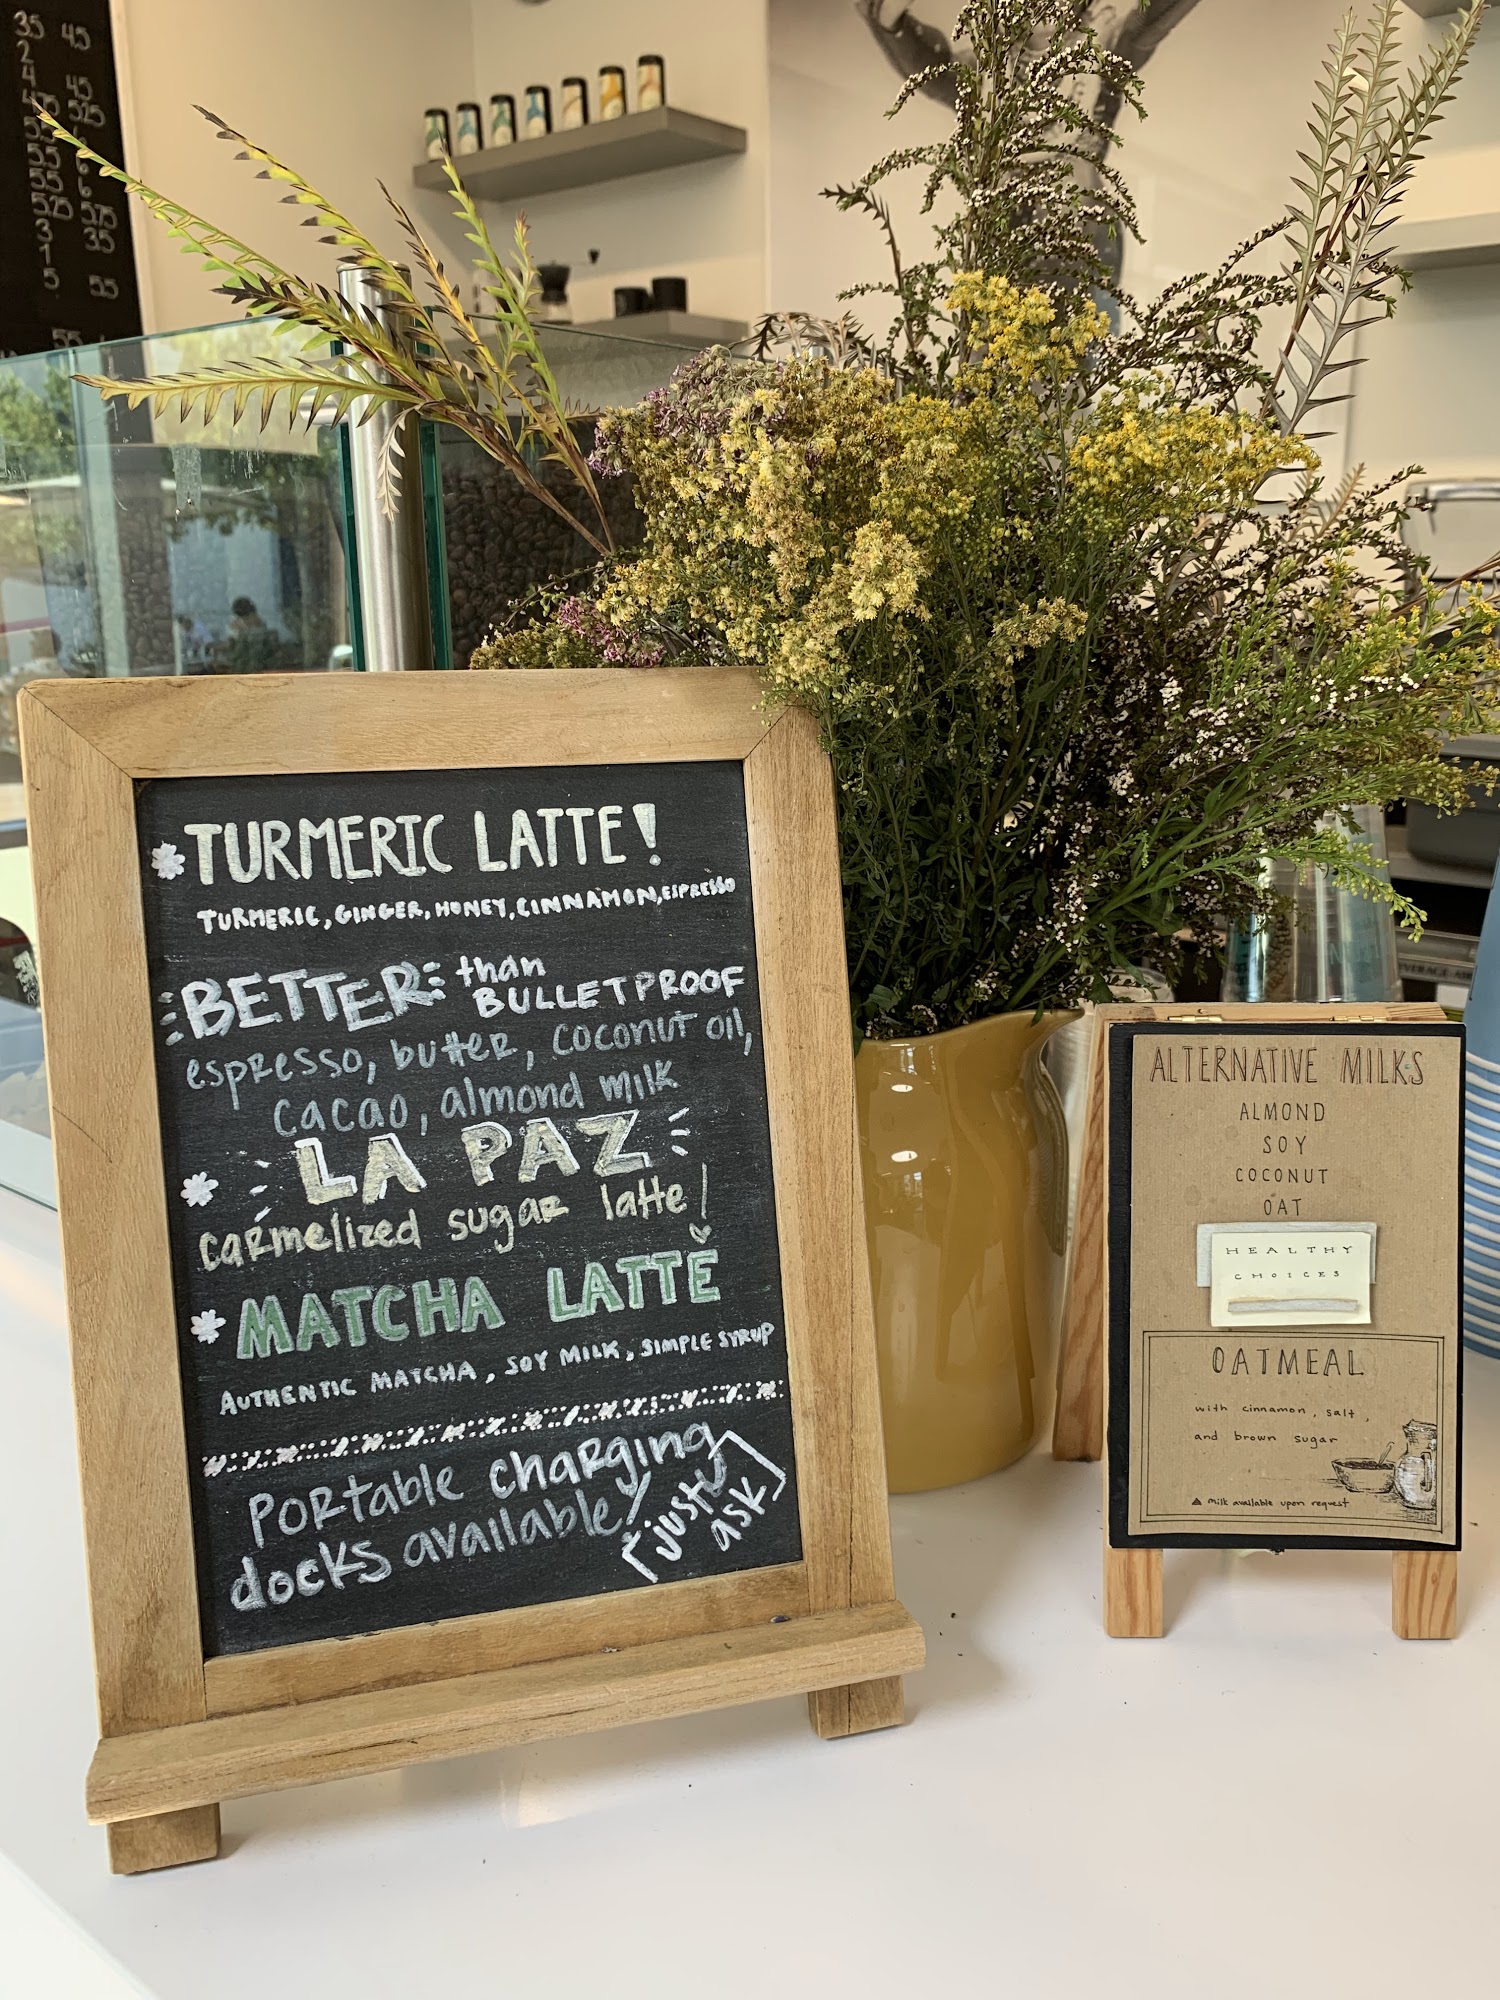 TURMERIC LATTE!
TURMERIC, GINGER, HONEY, CINNAMON, ESPRESSO
BETTER than
BULLETPROOF
espresso, butter, coconut oil,
cacao, almond milk
LA PAZ
carmelized sugar latte!
MATCHA LATTE
AUTHENTIC MATCHA, SOY MILK, SIMPLE SYRUP
Portable charging
docks available!
[just
ask]
ALTERNATIVE MILKS
ALMOND
SOY
COCONUT
OAT
HEALTHY
CHOICES
OATMEAL
with cinnamon, salt,
and brown sugar
milk available upon request
35 45
2
4 45